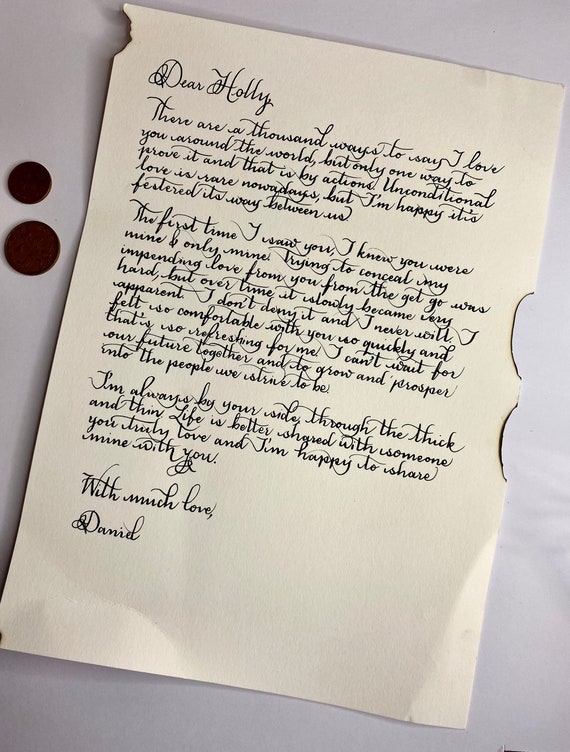 Dear Holly,
There are a thousand ways to say I love
you around the world, but only one way to
prove it and that is by actions. Unconditional
love is rare nowadays, but I'm happy it's
festered its way between us
The first time I saw you, I knew you were
mine & only mine. Trying to conceal my
impending love from you from the get go was
hard, but over time it slowly became very
apparent. I don't deny it and I never will. I
felt so comfortable with you so quickly and
that's so refreshing for me. I can't wait for
our future together and to grow and prosper
into the people we strive to be.
I'm always by your side, through the thick
and thin. Life is better shared with someone
you truly love and I'm happy to share
mine with you.
With much love,
Daniel